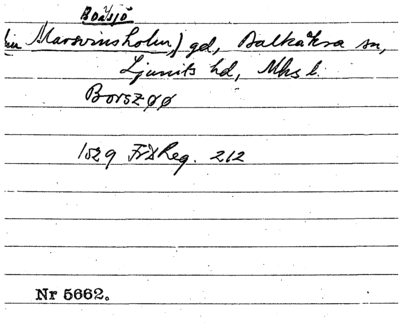 Bosjö
(nu Marsvinsholm) gd, Balkåkra sn,
Ljunits hd, Mhs l.
Borszøø
1529 FrIReg. 212
Nr 5662.